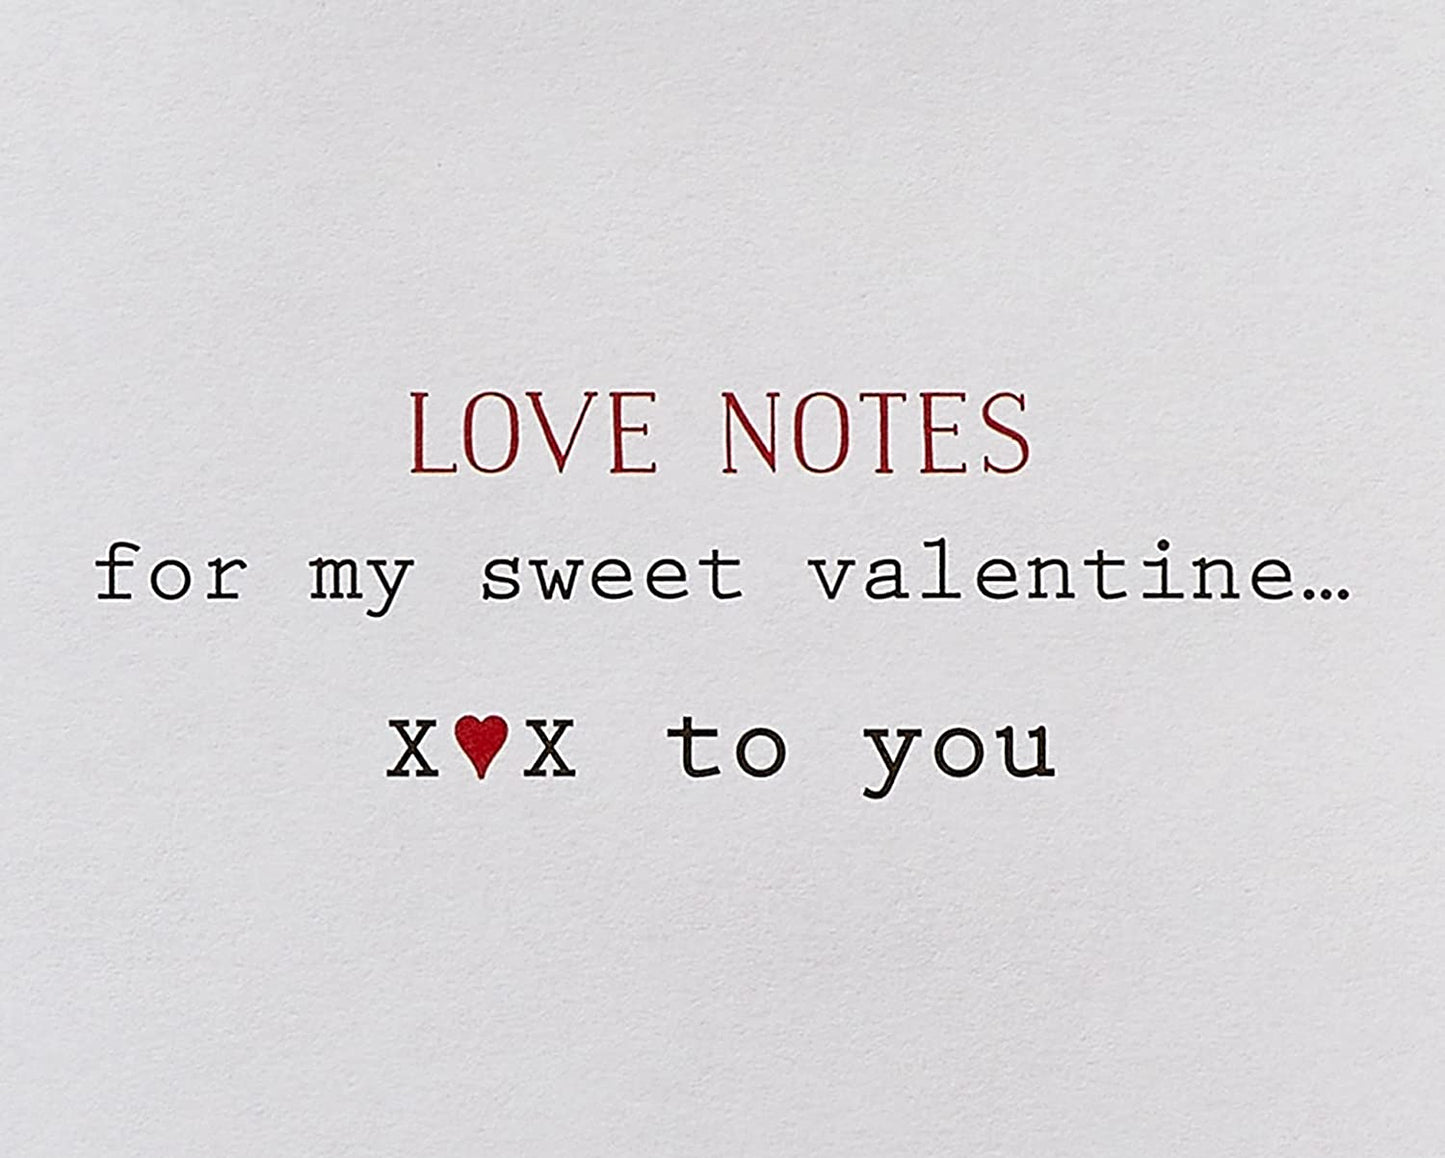 LOVE NOTES
for my sweet valentine…
X♥X to you